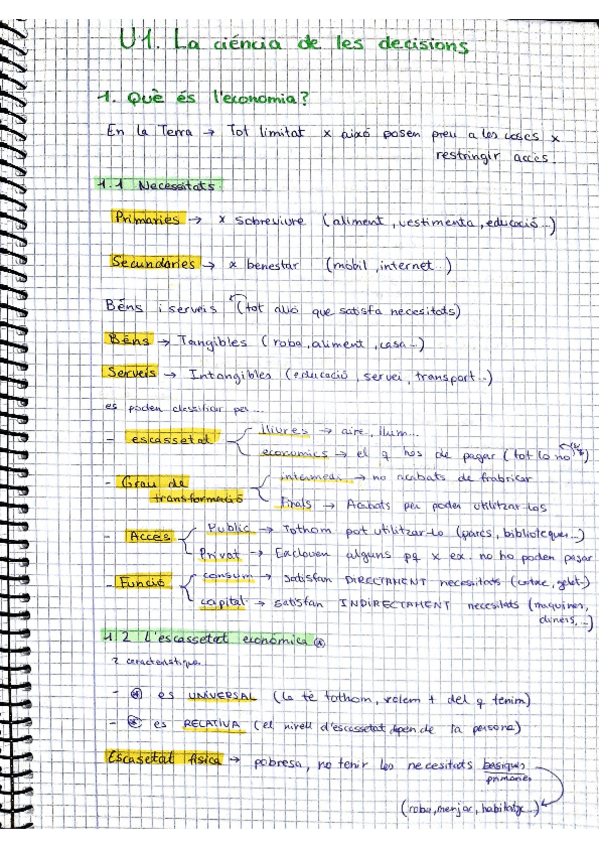 U1. La ciéncia de les decisions
1. Què és l'economia?
En la Terra → Tot limitat x aixó posen preu a les coses x
restringir accés.
1.1 Necessitats.
Primaries → x sobreviure (aliment, vestimenta, educació...)
Secundaries → x benestar (mòbil, internet...)
Béns i serveis (tot alló que satisfa necesitats)
Béns → Tangibles (roba, aliment, casa...)
Serveis → Intangibles (educació, servei, transport...)
es poden classificar per...
- escassetat lliures → aire, llum...
economics → el q hos de pagar (tot lo no
- Grau de intermedi → no acabats de frabricar
transformació Finals → Acabats per poder utilitzar-los
- Accés Public → Tothom pot utilitzar-lo (parcs, biblioteques...)
Privat → Exclouen alguns pq x ex. no ho poden pagar
- Funció consum → Satisfan DIRECTAMENT necesitats
capital → satisfan INDIRECTAMENT necesitats (maquines,
diners,...)
1.2 L'escassetat económica
2 caracteristique...
- es UNIVERSAL (la té tothom, volem + del q tenim)
- es RELATIVA (el nivell d'escassetat depen de la persona)
Escasetat física → pobresa, no tenir les necesitats basiques
primaries
(roba, menjar, habitatge...)